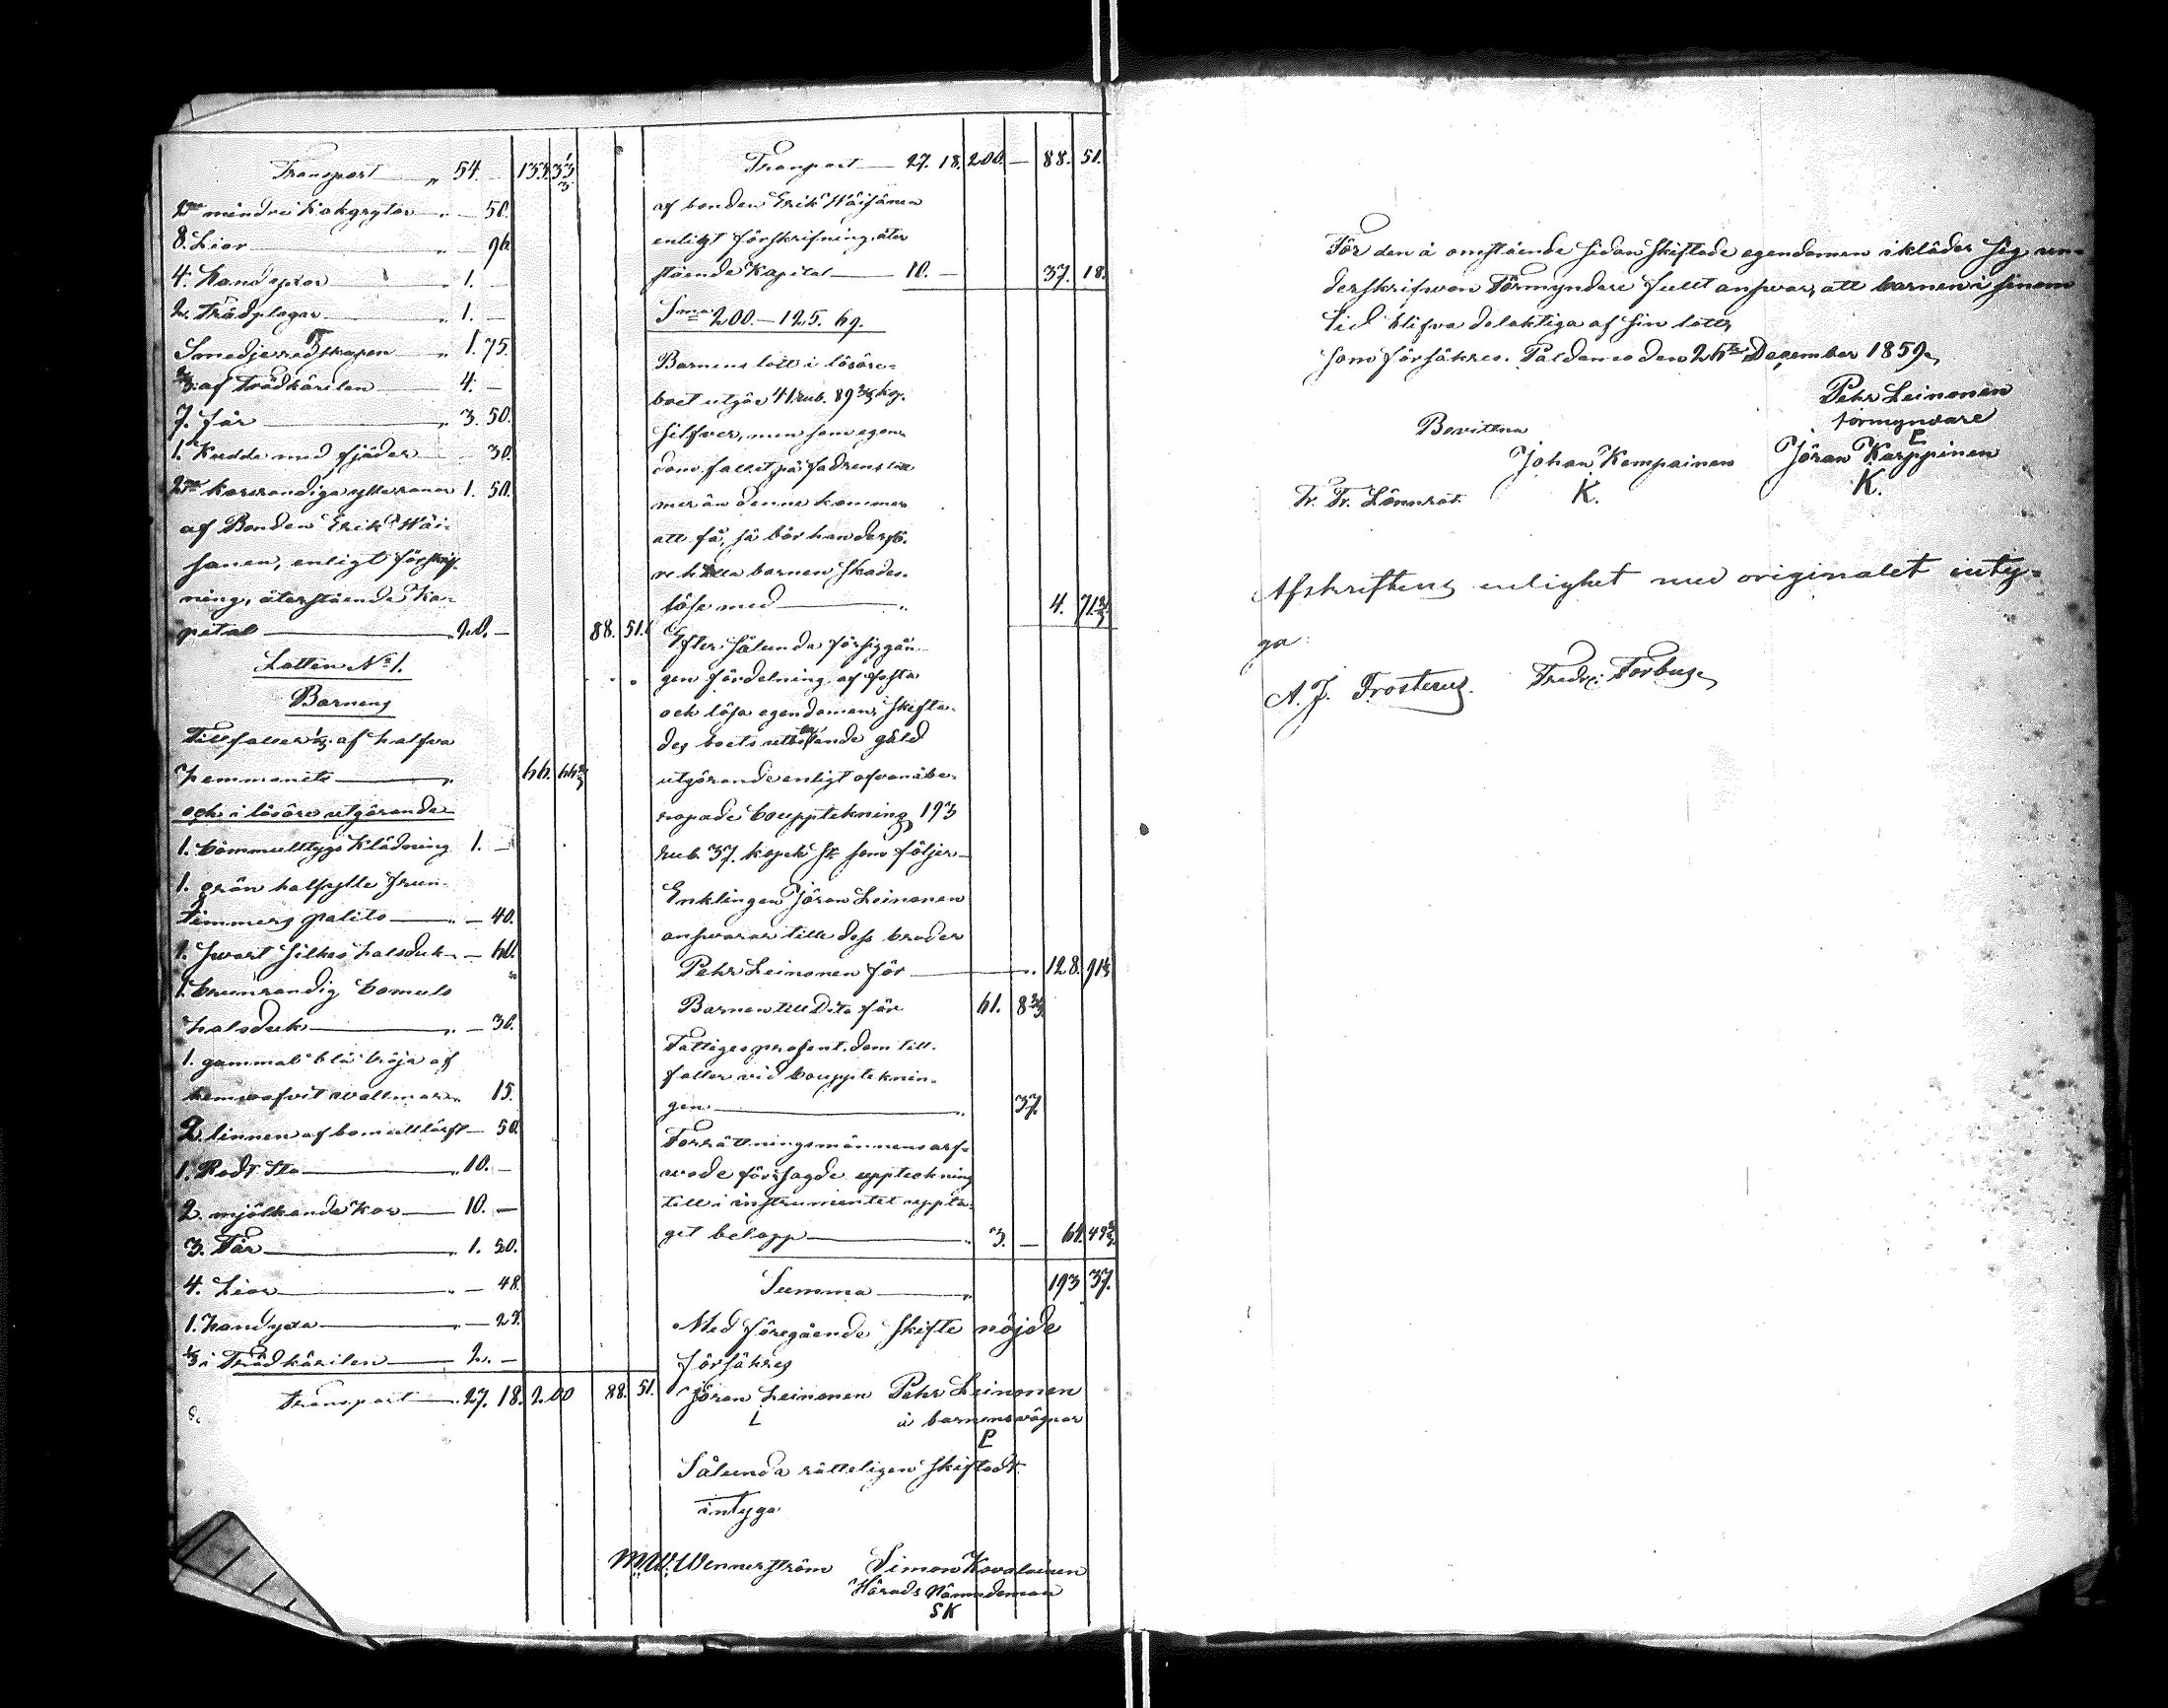 Transport „ 54. — 133. 33 1/3
2ne mindre Kokgrytor „ — 50.
8. Liar „ — 96
4. Handyxor „ 1. —
2. Trädplogar „ 1. —
Smedjeredskapen „ 1. 75.
2/3 af Trädkärilen „ 4. —
7. får „ 3. 50.
1. Kudde med fjäder — 30.
2ne korsrandiga ylleranor 1. 50.
af Bonden Erik Häi-
sänen, enligt förskrif-
ning, återstående Ka-
pital 20. — 88. 51.
Lotten No 1.
Barnens
Tillfaller 1/3 af halfva
hemmanets „ 66. 66 2/3
och i lösöre utgörande
1. bommullstygs Klädning 1. —
1. grön halfylle frun-
timmers palito „ — 40.
1. svart silkes halsduk „ — 60.
1. brunrandig bomuls
halsduk „ — 30.
1. gammal blå tröja af
hemväfvit vallmar „ 15.
2 linnen af bomullslärft — 50.
1. Rödt Sto „ 10. —
2. mjölkande kor 10. —
3. Får „ 1. 50.
4. Liar „ — 48.
1. handyxa „ — 25.
1/3 i Trädkärilen 2. —
Transport 27. 18. 200 88. 51.
Transport 27. 18. 200. — 88. 51.
af bonden Erik Häisänen
enligt förskrifning, åter
stående Kapital 10. — 37. 18.
Sma 200. — 125. 69.
Barnens lott i lösöre-
boet utgör 41. rub. 89 2/3 kop.
silfver, men som egen-
dom fallet på fadrens lott
mer än denne kommer
att få, så bör han derfö-
re hålla barnen skades-
löse med „ 4. 71 2/3
Efter sålunda försiggån-
gen fördelning af fasta
och lösa egendomen, skifta-
des boets utestående gäld
utgörande enligt ofvanåbe-
ropade bouppteckning 193
rub. 37. kopek Sr som följer —
Enklingen Jöran Leinonen
ansvarar till dess broder
Pehr Leinonen för „ 128. 91 1/3
Barnen till Dito för 61. 8 2/3
Fattiges procent, dem till-
faller vid bouppteknin-
gen „ 37.
Förrättningsmännens arf-
vode för sagde uppteckning
till i instrumentet uppta-
get belopp „ 3. — 64. 45 2/3
Summa „ 193 37.
Med föregående skifte nöjde
försäkres
Jöran Leinonen Pehr Leinonen
L å barnens vägnar
P
Sålunda rätteligen skiftadt
intyga
M. W. Wennerström Simon Kovalainen
Härads Nämndeman
SK
För den å omstående sidan skiftade egendomen ikläder sig un-
derskrifven Förmyndare fullt ansvar, att barnen i sinom
tid blifva delaktiga af sin lott,
som försäkres. Paldamo den 26te December 1859,
Pehr Leinonen
förmyndare
P
Bevittna
Johan Kempainen Jöran Karppinen
K. K.
Fr. Fr. Lönnrot
Afskriftens enlighet med originalet inty-
ga:
A. J. Frosterus. Fredr. Forbus